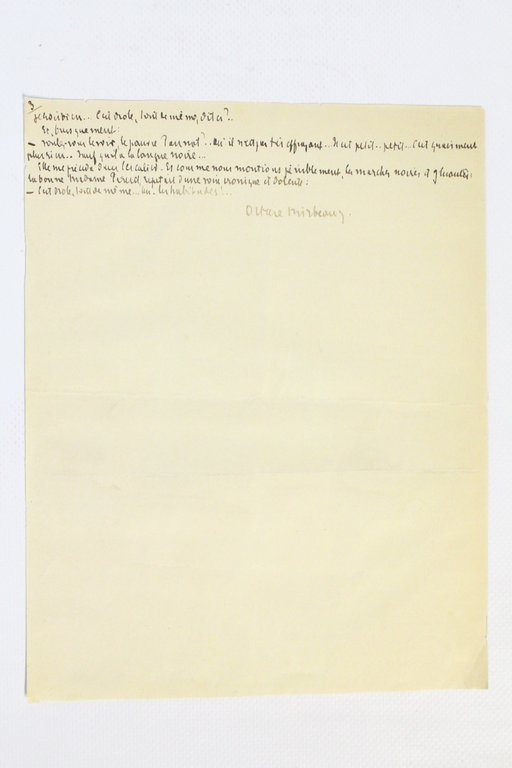 3
... C'est drôle, tout de même, dites ?..
Et, brusquement :
— voulez-vous le voir, le pauvre ... ?.. Ah ! il n'est pas très effrayant... Il est petit.. petit... C'est quasiment
plus rien... Sauf qu'il a la langue noire...
Elle me précéda dans l'escalier. Et comme nous montions péniblement, les marches noires et gluantes,
la bonne Madame ... répétait d'une voix chronique et dolente :
— C'est drôle, tout de même... les habitudes !...
Octave Mirbeau.